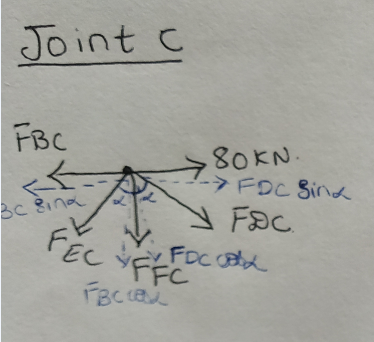 Joint C
FBC
80KN.
BC Sinα
FDC Sinα
FDC
FEC
FFC
FDC cosα
FBC cosα